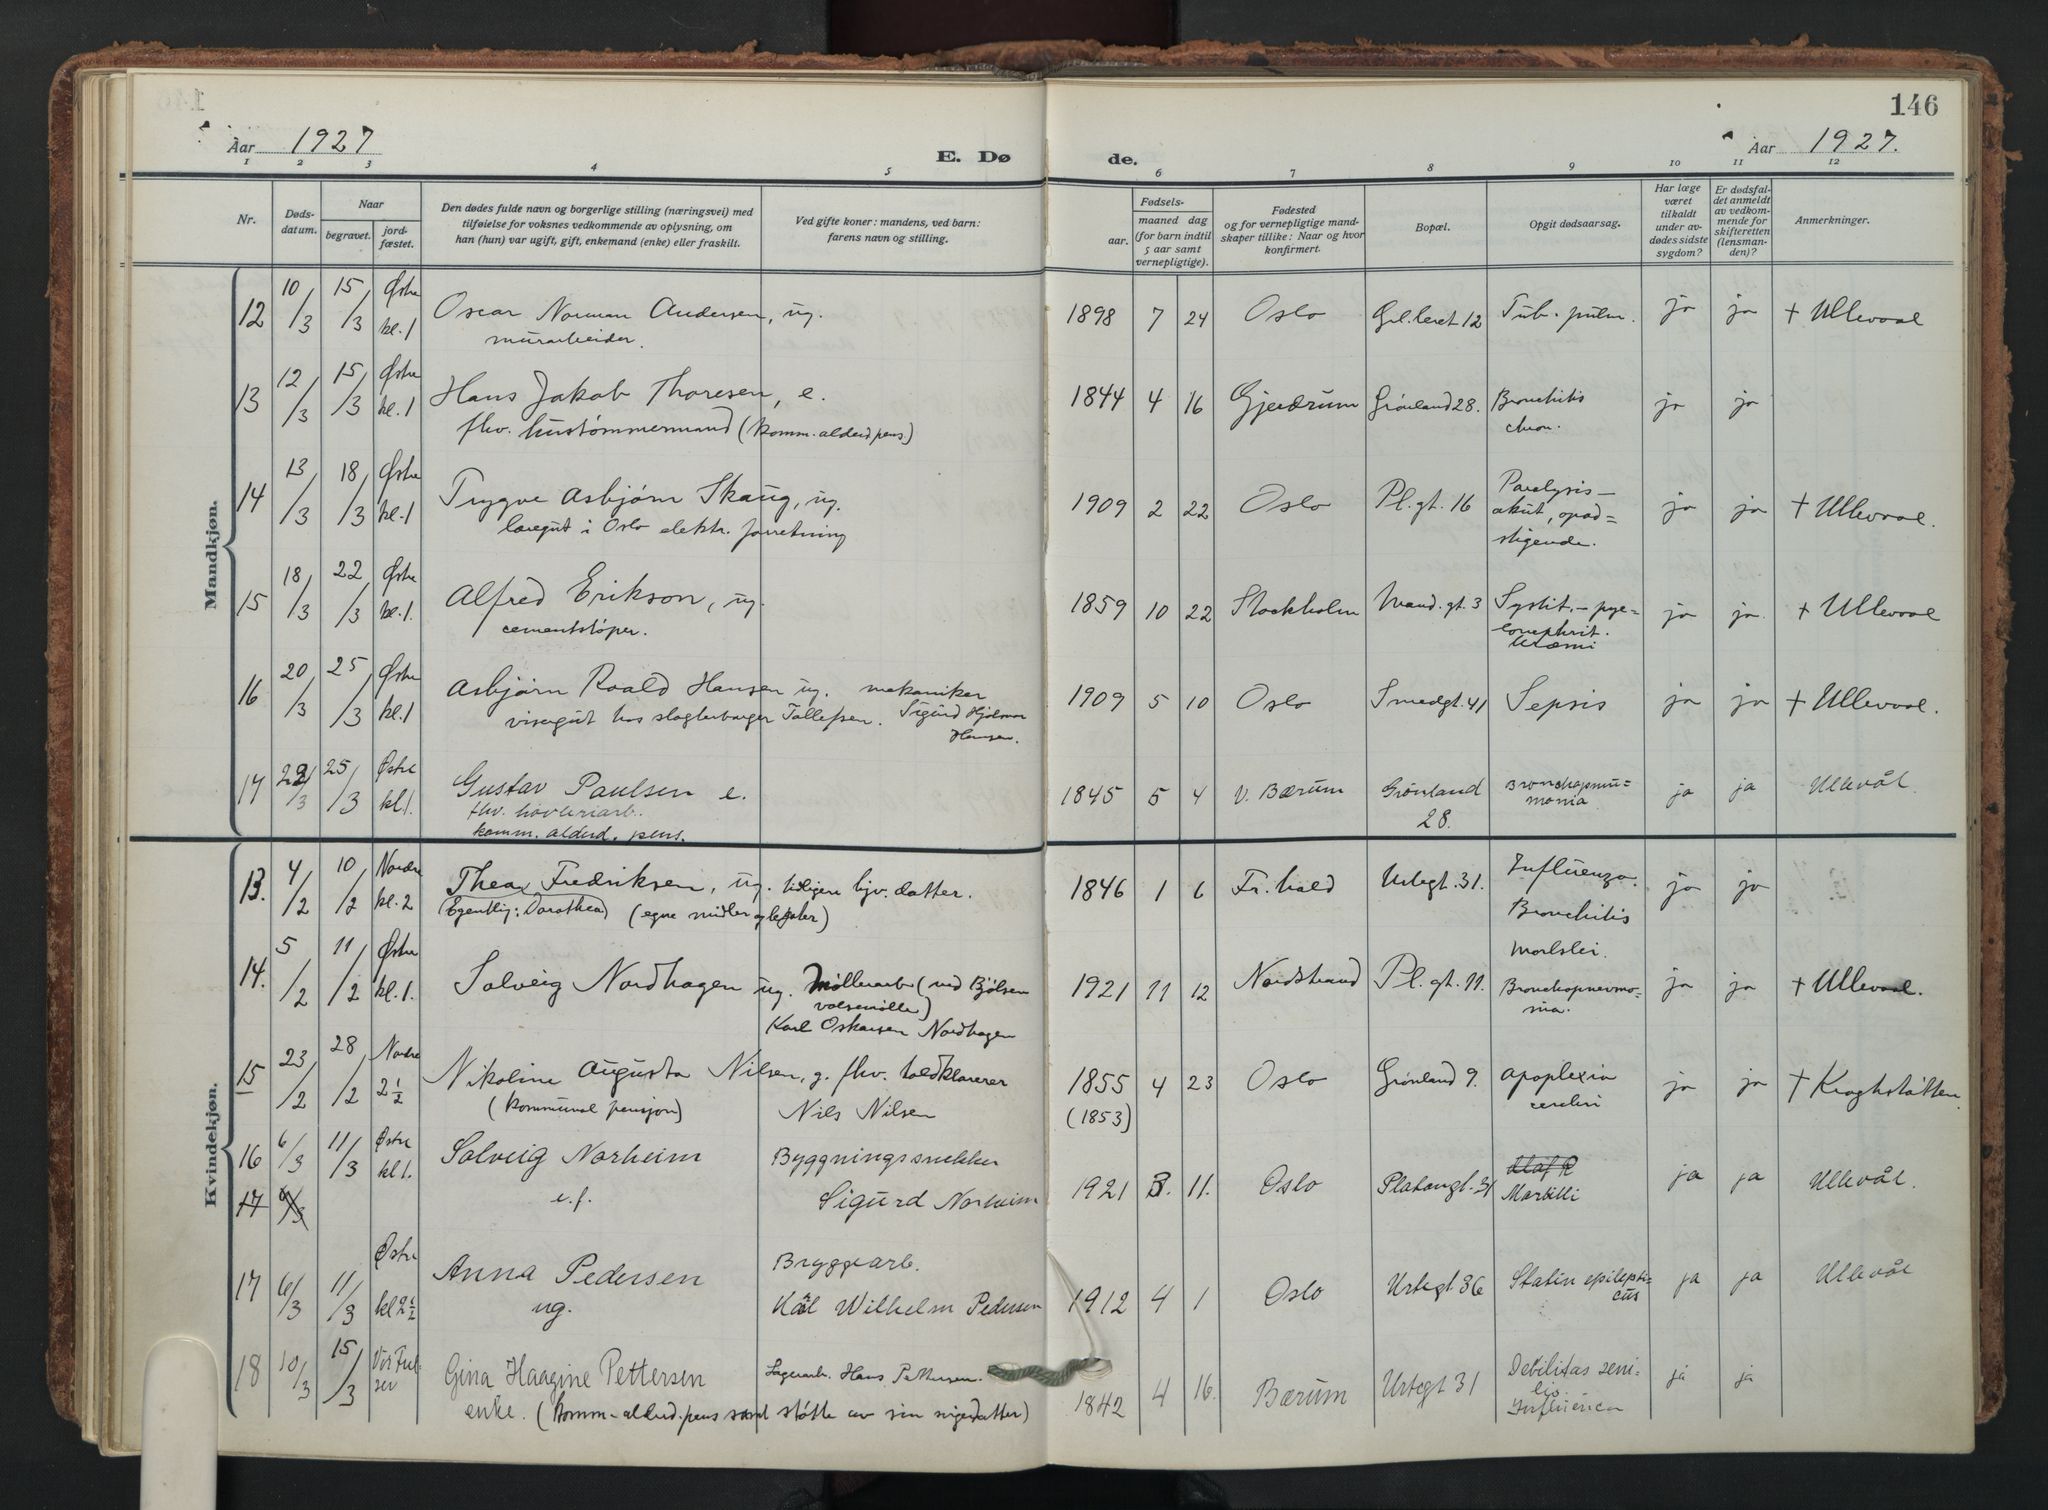 146
Aar 1927
E. Dø
de.
Aar 1927.
1 2 3 4 5 6 7 8 9 10 11 12
Nr.
Døds-
datum.
Naar
begravet.
jord-
fæstet.
Den dødes fulde navn og borgerlige stilling (næringsvei) med
tilføielse for voksnes vedkommende av oplysning, om
han (hun) var ugift, gift, enkemand (enke) eller fraskilt.
Ved gifte koner: mandens, ved barn:
farens navn og stilling.
Fødsels-
aar.
maaned dag
(for barn indtil
5 aar samt
vernepligtige).
Fødested
og for vernepligtige mand-
skaper tillike: Naar og hvor
konfirmert.
Bopæl.
Opgit dødsaarsag.
Har læge
været
tilkaldt
under av-
dødes sidste
sygdom?
Er dødsfal-
det anmeldt
av vedkom-
mende for
skifteretten
(lensman-
den)?
Anmerkninger.
Mandkjøn.
12 10/3 15/3 Østre kl. 1 Oscar Norman Andersen, ug. 1898 7 24 Oslo Grl.leret 12 Tub. pulm. ja ja + Ullevaal
murarbeider.
13 12/3 15/3 Østre kl. 1 Hans Jakob Thoresen, e. 1844 4 16 Gjerdrum Grønland 28. Bronchitis ja ja
fhv. hustømmermand (komm. alderd pens.) chron.
14 13/3 18/3 Østre kl. 1 Trygve Asbjørn Skaug, ug. 1909 2 22 Oslo Pl. gt. 16 Paralysis - ja ja + Ullevaal.
læregut i Oslo elektr. forretning akut, opad=
stigende.
15 18/3 22/3 Østre kl. 1. Alfred Erikson, ug. 1859 10 22 Stockholm Mand. gt. 3 Cystit. - pye= ja ja. + Ullevaal
cementstøper. lonephrit.
Uræmi
16 20/3 25/3 Østre kl. 1 Asbjørn Roald Hansen ug. mekaniker 1909 5 10 Oslo Smedgt. 41 Sepsis ja ja + Ullevaal.
visergut hos slagterborger Tollefsen. Sigurd Hjalmar
Hansen.
17 25/3 Østre kl. 1. Gustav Paulsen e. 1845 5 4 V. Bærum Grønland Bronchopneu= ja ja Ullevål.
fhv. høvleriarb. 28. monia
komm. alderd. pens.
Kvindekjøn.
13. 4/2 10/2 Nordre kl. 2 Thea Fredriksen, ug. tidligere hjv. datter. 1846 1 6 Fr.hald Urtegt. 31. Influenza. ja ja
(Egentlig: Dorothea) (egne midler og legater) Bronchitis
14. 5/2 11/2 Østre kl. 1. Solveig Nordhagen ug. Møllerarb (ved Bjølsen 1921 11 12 Nordstrand Pl. gt. 11. Morbilli. ja ja + Ullevaal.
valsemølle) Bronchopnevmo-
Karl Oskarsen Nordhagen nia.
15 23/2 28/2 Nordre 2 1/2 Nikoline Augusta Nilsen, g. fhv. toldklarerer 1855 4 23 Oslo Grønland 9. Apoplexia ja ja + Kroghstøtten.
(kommunal pensjon) Nils Nilsen (1853) cerebri
16 6/3 11/3 Østre kl. 1. Solveig Norheim Byggningssnekker 1921 3. 11. Oslo Platougt. 31 Morbilli ja ja Ullevål.
17 6/3 Sigurd Norheim
17 6/3 11/3 Østre kl 2 1/2 Anna Pedersen Bryggearb. 1912 4 1 Oslo Urtegt 36 Statin epilepti- ja ja Ullevål
ug. Karl Wilhelm Pedersen cus
18 10/3 15/3 Vor Frel-ser Gina Haagine Pettersen Lagerarb. Hans Pettersen. 1842 4 16. Bærum Urtegt 31 Debilitas seni- ja ja
enke. (komm-alderd.pens samt støtte av sin nigedatter) lis.
Influenca